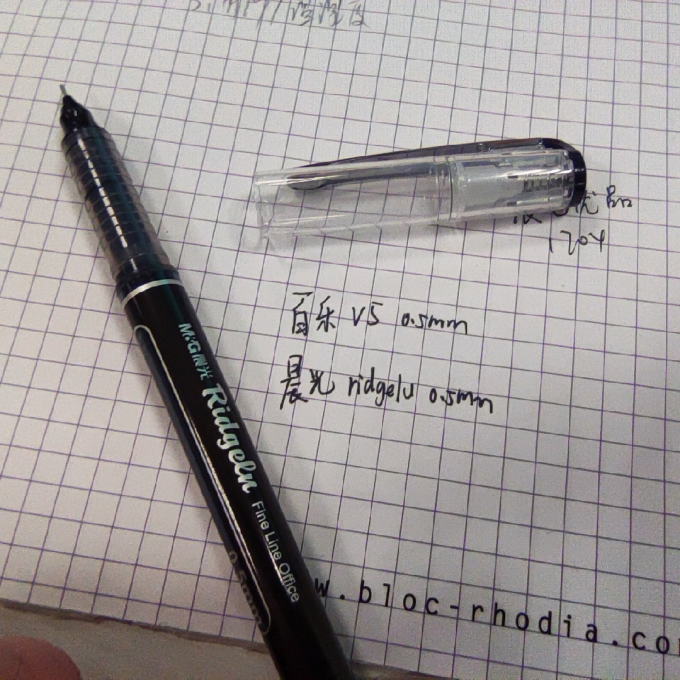 百乐 V5 0.5mm
晨光 ridgelu 0.5mm
M&G晨光
Ridgeln
Fine Line Office
0.5mm
w.bloc-rhodia.co
120Y